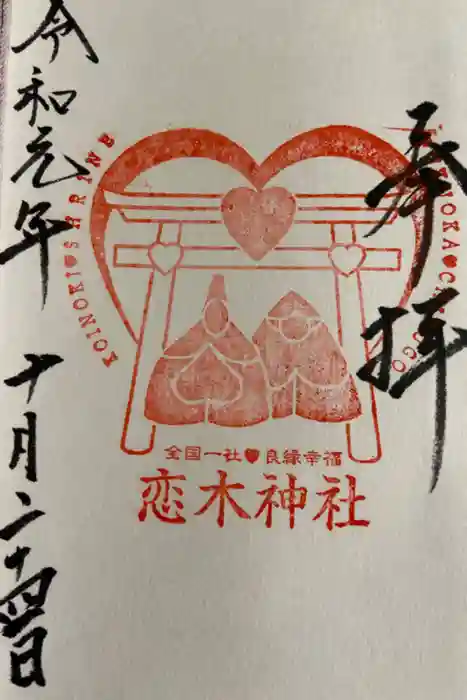 奉拝
KOINOKI♥SHRINE
全国一社♥良縁幸福
恋木神社
令和元年十月二十四日